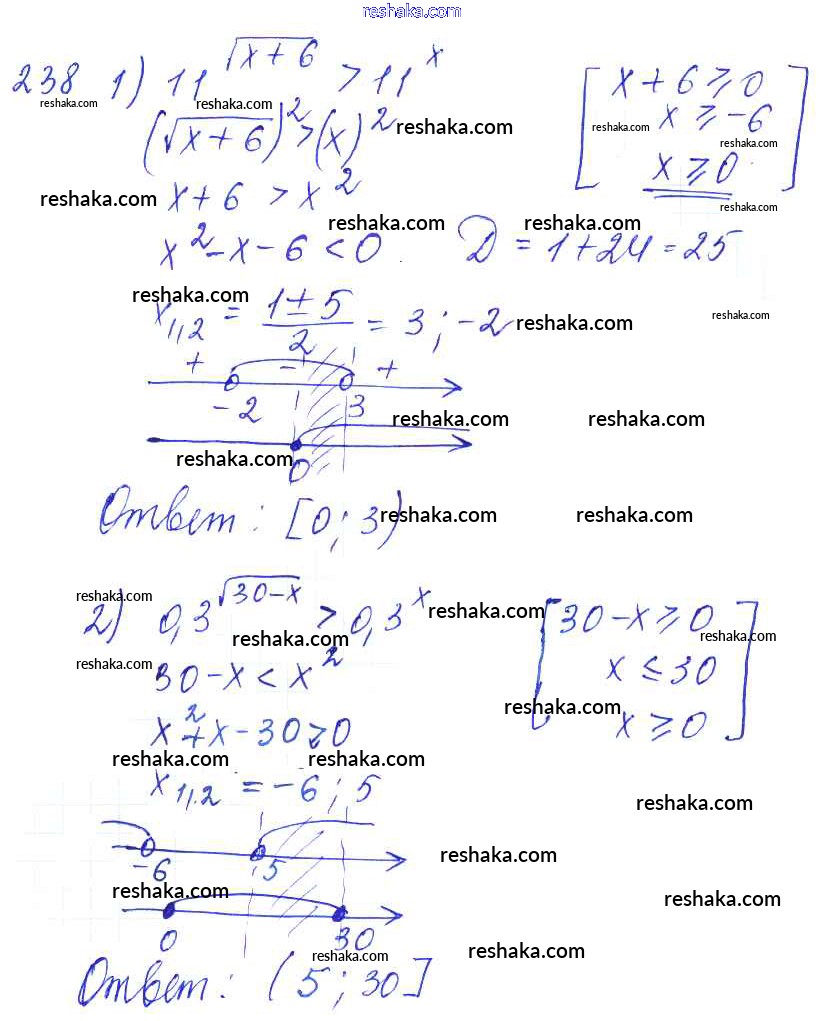 reshaka.com
238 1) 11^√(x+6) > 11^x [ x+6 ≥ 0
reshaka.com reshaka.com
(√(x+6))^2 > (x)^2 reshaka.com reshaka.com x ≥ -6
reshaka.com
x ≥ 0 ]
reshaka.com x+6 > x^2 reshaka.com
reshaka.com reshaka.com
x^2 - x - 6 < 0. D = 1+24 = 25
reshaka.com
x1,2 = (1±5)/2 = 3; -2 reshaka.com reshaka.com
+ - +
-2 3
reshaka.com reshaka.com
reshaka.com
0
Ответ: [0; 3) reshaka.com reshaka.com
reshaka.com
2) 0,3^√(30-x) > 0,3^x reshaka.com [ 30-x ≥ 0
reshaka.com reshaka.com
reshaka.com
30-x < x^2 x ≤ 30
reshaka.com
x^2+x-30 > 0 x ≥ 0 ]
reshaka.com reshaka.com
x1,2 = -6; 5
reshaka.com
-6 5
reshaka.com
reshaka.com reshaka.com
0 30
reshaka.com reshaka.com
Ответ: (5; 30]